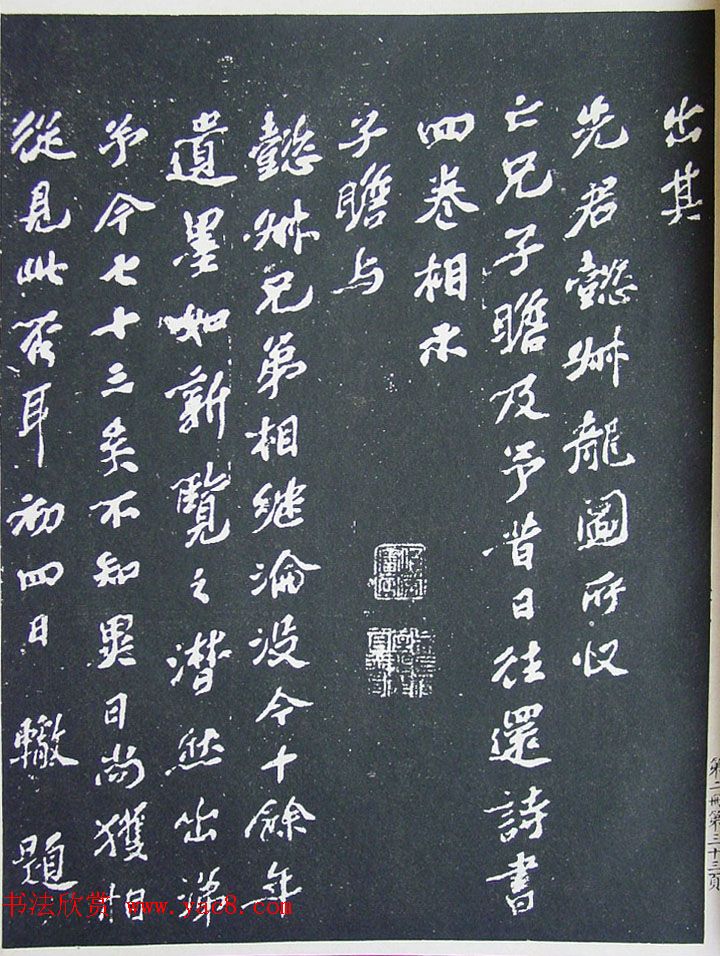 出其
先君懿叔龍圖所收
亡兄子瞻及予昔日往還詩書
四卷相示
子瞻与
懿叔兄弟相继淪没今十餘年
遺墨如新覽之潸然出涕
予今七十三矣不知異日尚獲相
從見此否耳初四日 轍 題
第二冊第三十三頁
书法欣赏 www.yac8.com